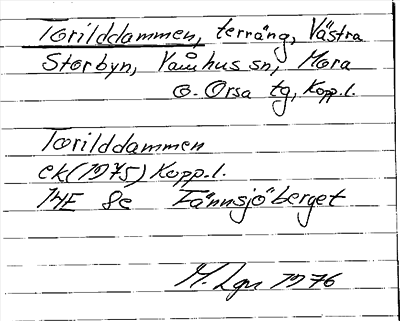 Torilddammen, terräng, Västra
Storbyn, Våmhus sn, Mora
o. Orsa tg, Kopp.l.
Torilddammen
ek (1975) Kopp.l.
14E 8c Fännsjöberget
M. Lgn 1976